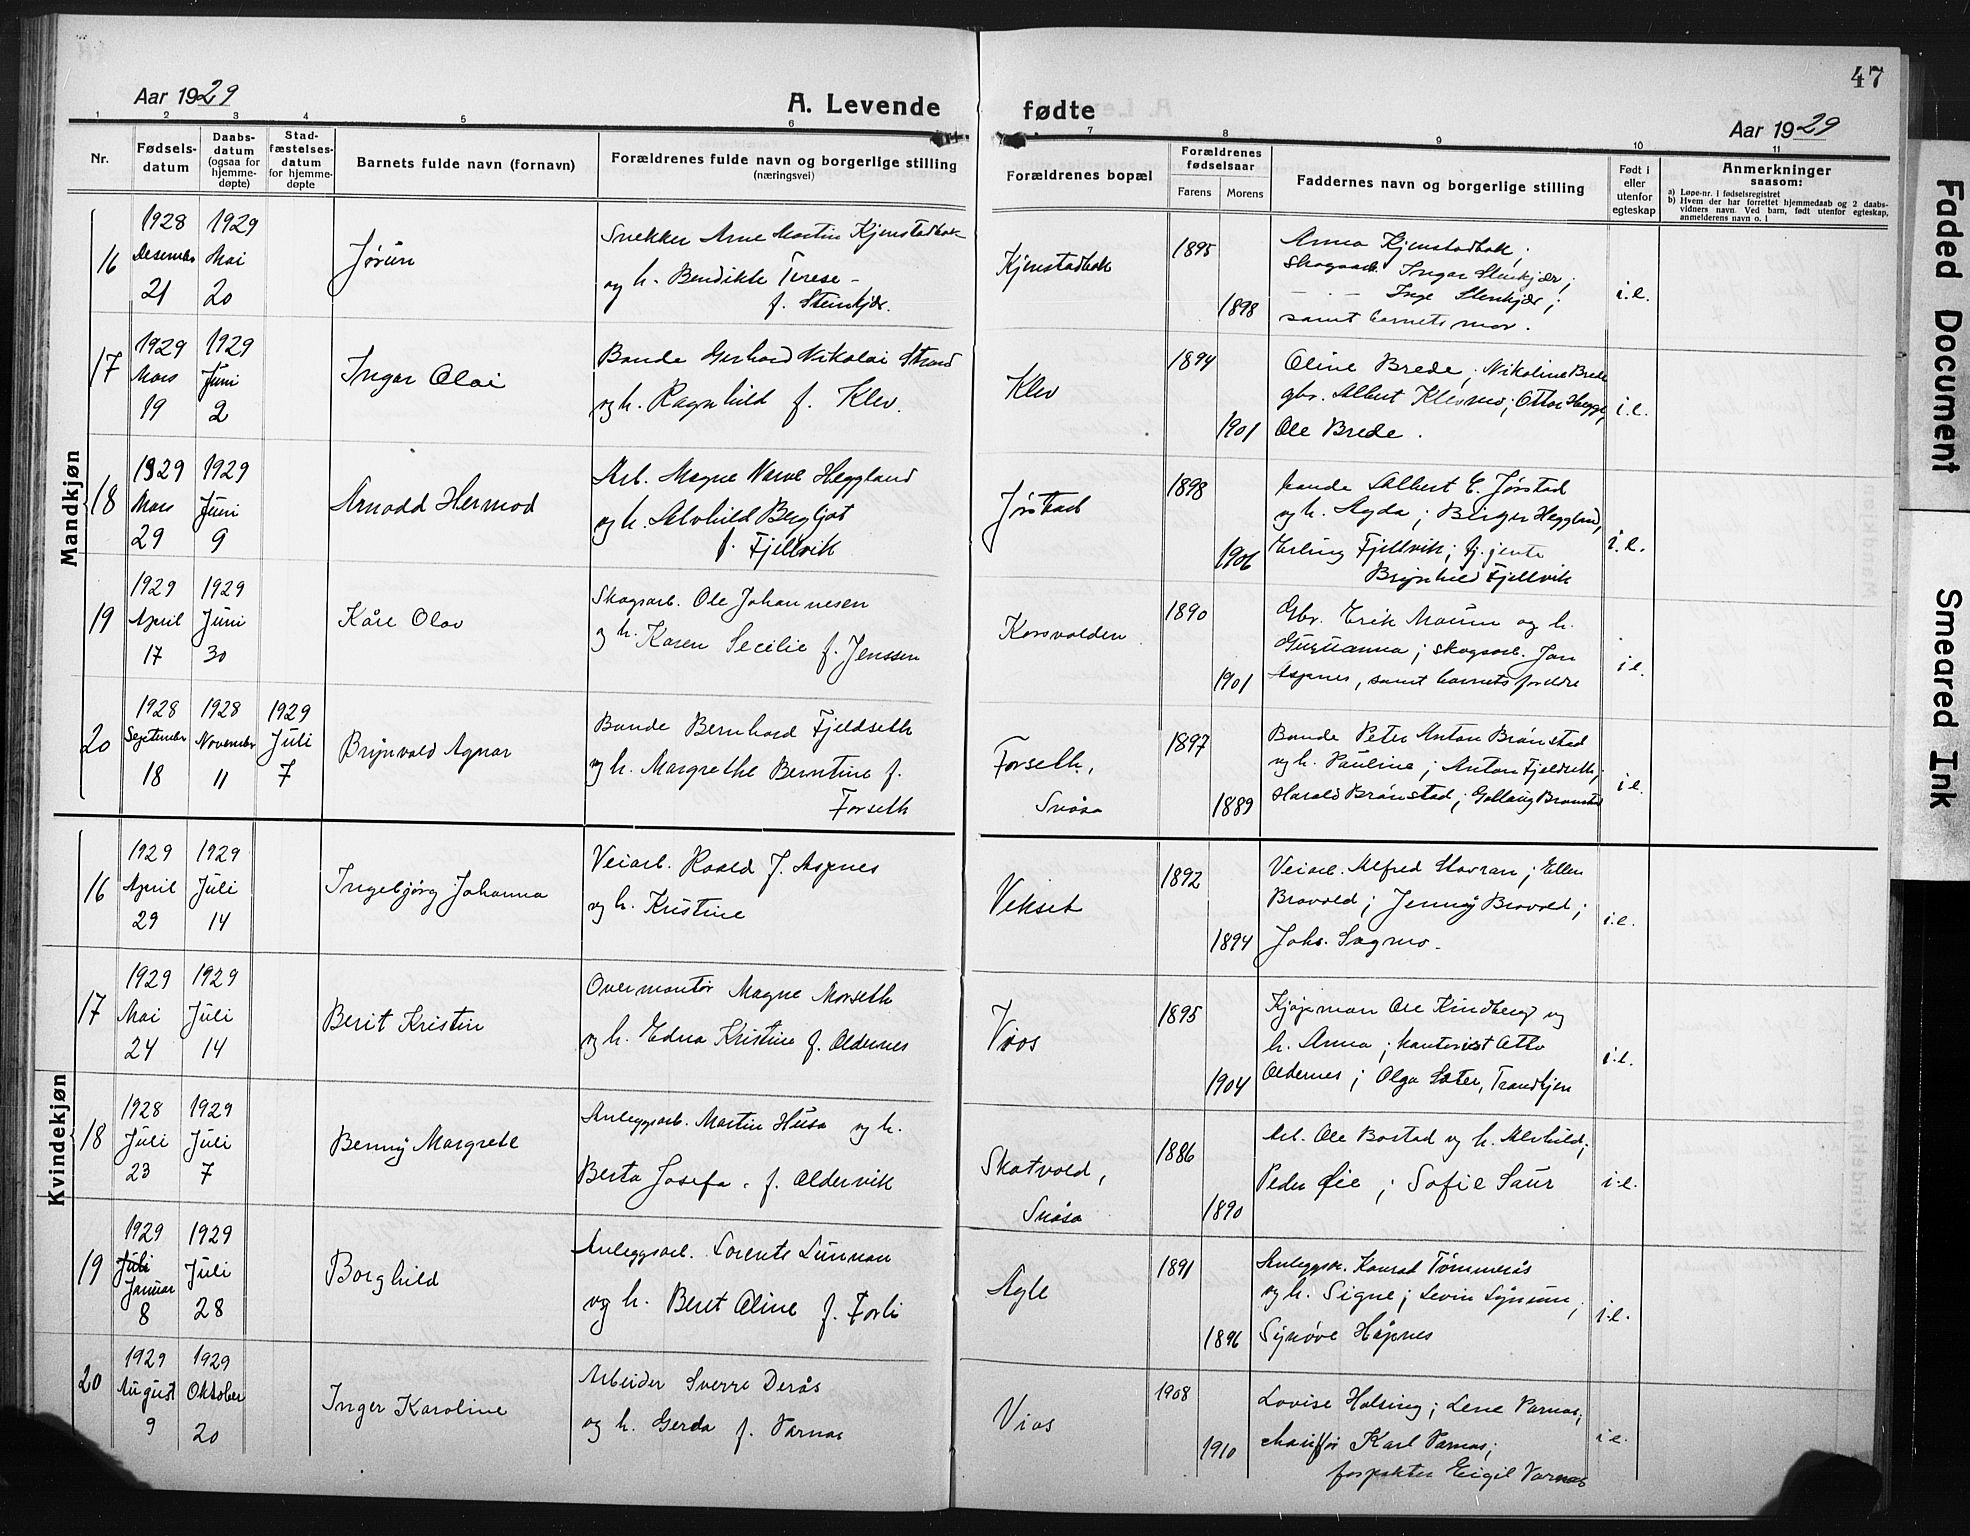 47
Aar 1929
A. Levende fødte
Aar 1929
1 2 3 4 5 6 7 8 9 10 11
Nr.
Fødsels-
datum
Daabs-
datum
(ogsaa for
hjemme-
døpte)
Stad-
fæstelses-
datum
for hjemme-
døpte
Barnets fulde navn (fornavn)
Forældrenes fulde navn og borgerlige stilling
(næringsvei)
Forældrenes bopæl
Forældrenes
fødselsaar
Farens
Morens
Faddernes navn og borgerlige stilling
Født i
eller
utenfor
egteskap
Anmerkninger
saasom:
a) Løpe-nr. i fødselsregistret
b) Hvem der har forrettet hjemmedaab og 2 daabs-
vidners navn. Ved barn, født utenfor egteskap,
anmelderens navn o. l
Mandkjøn
16
1928
Desember
21
1929
Mai
20
Jørun
Snekker Arne Martin Kjenstadbak
og h. Bendikte Terese
f. Steinkjær.
Kjenstadbak
1895
1898
Anna Kjenstadbak;
Skogsarb. Ingar Stenkjær;
— — Inge Stenkjær;
samt barnets mor.
i.e.
17
1929
Mars
19
1929
Juni
2
Ingar Olai
Bonde Gerhard Nikolai Strand
og h. Ragnhild f. Klev.
Klev
1894
1901
Oline Brede; Nikoline Brede
gbr. Albert Klevmo; Ottar Hegge,
Ole Brede.
i.e.
18
1929
Mars
29
1929
Juni
9
Arnodd Hermod
Arb. Magne Heggland
og h. Alvhild Bergljot
f. Fjellvik
Jørstad
1898
1906
bonde Albert E. Jørstad
og h. Agda; Birger Heggland,
Erling Fjellvik; tj.jente
Brynhild Fjellvik
i.e.
19
1929
April
17
1929
Juni
30
Kåre Olav
Skogsarb. Ole Johannesen
og h. Karen Secilie f. Jenssen
Korsvolden
1890
1901
Gbr. Erik Moum og h.
Gusuanna; skogsarb. Jon
Aspnes, samt barnets foreldre
i.e.
20
1928
September
18
1928
November
11
1929
Juli
7
Brynvald Agnar
Bonde Bernhard Fjeldseth
og h. Margrethe Berntine f.
Forseth
Forseth,
Snåsa
1897
1889
Bonde Peter Anton Brønstad
og h. Pauline; Anton Fjeldseth;
Harald Brønstad; Gollaug Brønstad
i.e.
Kvindekjøn
16
1929
April
29
1929
Juli
14
Ingebjørg Johanna
Veiarb. Roald J. Aspnes
og h. Kristine
Vekset
1892
1894
Veiarb. Alfred Storran; Ellen
Bravold; Jenny Bravold;
Johs. Sagmo.
i.e.
17
1929
Mai
24
1929
Juli
14
Berit Kristin
Overmontør Magne Morseth
og h. Edna Kristine f. Aldernes
Vios
1895
1904
Kjøpman Ole Kindberg og
h. Anna; kontorist Otto
Aldernes; Olga Sæter, Trondhjem
i.e.
18
1928
Juli
23
1929
Juli
7
Benny Margrete
Anleggsarb. Martin Husa og h.
Berta Josefa f. Aldervik
Skatvold,
Snåsa
1886
1890
Arb. Ole Bostad og h. Alvhild;
Peder Øie; Sofie Saur
i.e.
19
1929
Juli
Januar
8
1929
Juli
28
Borghild
Anleggsarb. Lorents Sunnan
og h. Beret Oline f. Forli
Agle
1891
1896
Anleggsar. Konrad Tømmerås
og h. Signe; Levin Synum;
Synøve Håpnes
i.e.
20
1929
August
9
1929
Oktober
20
Inger Karoline
Arbeider Sverre Derås
og h. Gerda f. Varnes
Vios
1908
1910
Lovise Holsing; Lene Varnes;
chauffør Karl Varnes;
forpakter Eigil Varnes
i.e.
Faded Document
Smeared Ink